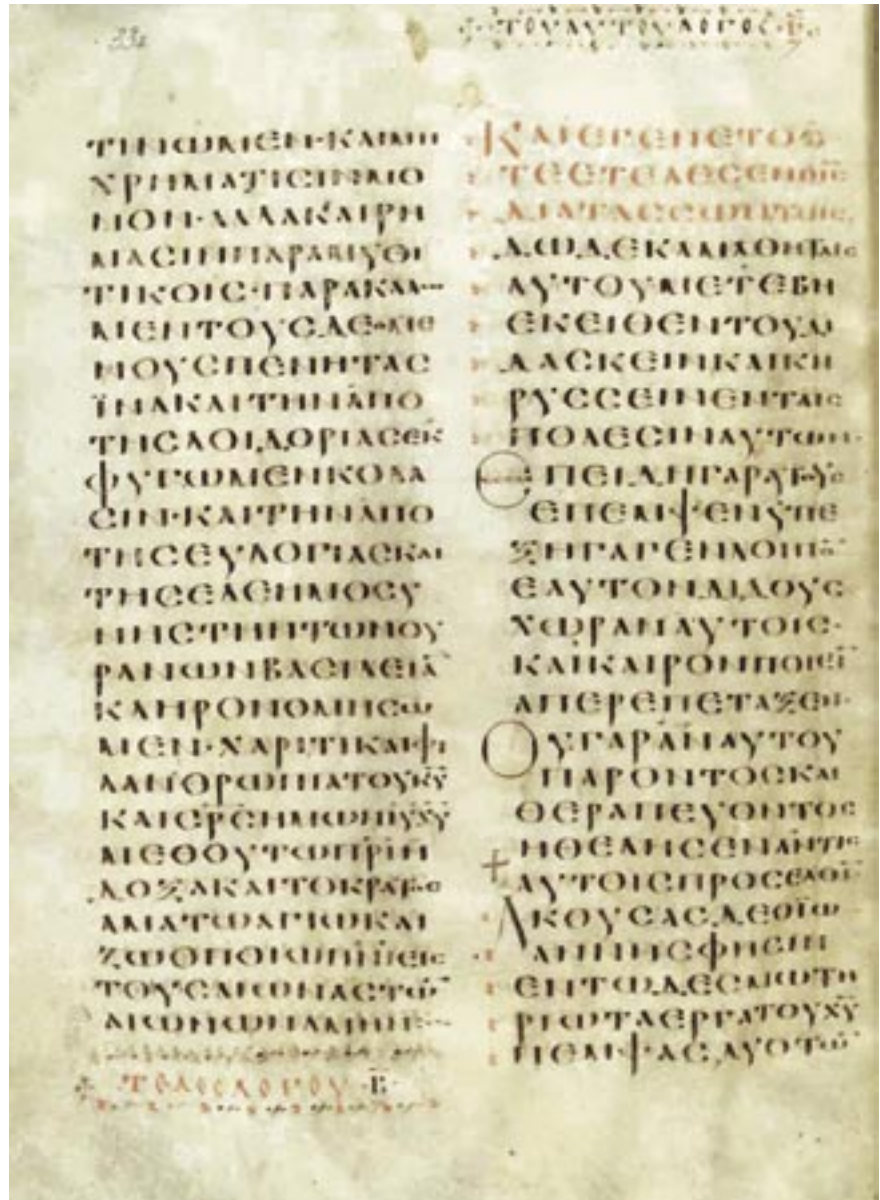 33
ΤΟΥ ΑΥΤΟΥ ΛΟΓΟΣ
ΤΙΝΩΜΕΝ·ΚΑΙΜΗ
ΧΡΗΜΑΤΙϹΙΝΜΟ
ΝΟΝ·ΑΛΛΑΚΑΙΡΗ
ΜΑϹΙΝΠΑΡΑΜΥΘΗ
ΤΙΚΟΙϹ·ΠΑΡΑΚΑΛ
ΜΕΝΤΟΥϹΔΕΟΜΕ
ΝΟΥϹΠΕΝΗΤΑϹ
ΪΝΑΚΑΙΤΗΝΑΠΟ
ΤΗϹΛΟΙΔΟΡΙΑϹΕΚ
ΦΥΓΩΜΕΝΚΟΛΑ
ϹΙΝ·ΚΑΙΤΗΝΑΠΟ
ΤΗϹΕΥΛΟΓΙΑϹΚΑΙ
ΤΗϹΕΛΕΗΜΟϹΥ
ΝΗϹΤΗΝΤΩΝΟΥ
ΡΑΝΩΝΒΑϹΙΛΕΙΑ̅
ΚΛΗΡΟΝΟΜΗϹΩ
ΜΕΝ·ΧΑΡΙΤΙΚΑΙΦΙ
ΛΑΝΘΡΩΠΙΑΤΟΥΚ̅Υ̅
ΚΑΙϹ̅Ρ̅Ϲ̅ΗΜΩΝΙ̅Υ̅Χ̅Υ̅
ΜΕΘΟΥΤΩΠ̅Ρ̅Ι̅Η
ΔΟΞΑΚΑΙΤΟΚΡΑΤΟϹ
ΑΜΑΤΩΑΓΙΩΚΑΙ
ΖΩΟΠΟΙΩΠ̅Ν̅Ι̅ΕΙϹ
ΤΟΥϹΑΙΩΝΑϹΤΩ̅
ΑΙΩΝΩΝΑΜΗΝ
ΤΕΛΟϹΛΟΓΟΥ·Β̅·
ΚΑΙΕΓΕΝΕΤΟΟ
ΤΕΕΤΕΛΕϹΕΝΟΙ̅Ϲ̅
ΔΙΑΤΑϹϹΩΝΤΟΙϹ
ΔΩΔΕΚΑΜΑΘΗΤΑΙϹ
ΑΥΤΟΥΜΕΤΕΒΗ
ΕΚΕΙΘΕΝΤΟΥΔΙ
ΔΑϹΚΕΙΝΚΑΙΚΗ
ΡΥϹϹΕΙΝΕΝΤΑΙϹ
ΠΟΛΕϹΙΝΑΥΤΩΝ·
ΕΠΕΙΔΗΓΑΡΑΥΤΟΥϹ
ΕΠΕΜΨΕΝΥΠΕ
ΞΗΓΑΓΕΝΛΟΙΠΟ̅
ΕΑΥΤΟΝΔΙΔΟΥϹ
ΧΩΡΑΝΑΥΤΟΙϹ·
ΚΑΙΚΑΙΡΟΝΠΟΙΕΙ̅
ΑΠΕΡΕΠΕΤΑΞΕΝ·
ΟΥΓΑΡΑΝΑΥΤΟΥ
ΠΑΡΟΝΤΟϹΚΑΙ
ΘΕΡΑΠΕΥΟΝΤΟϹ
ΗΘΕΛΗϹΕΝΑΝΤΙϹ
ΑΥΤΟΙϹΠΡΟϹΕΛΘΕΙ̅
ΑΚΟΥϹΑϹΔΕΟΪΩ
ΑΝΝΗϹΦΗϹΙΝ
ΕΝΤΩΔΕϹΜΩΤΗ
ΡΙΩΤΑΕΡΓΑΤΟΥΧ̅Υ̅
ΠΕΜΨΑϹΔΥΟΤΩ̅